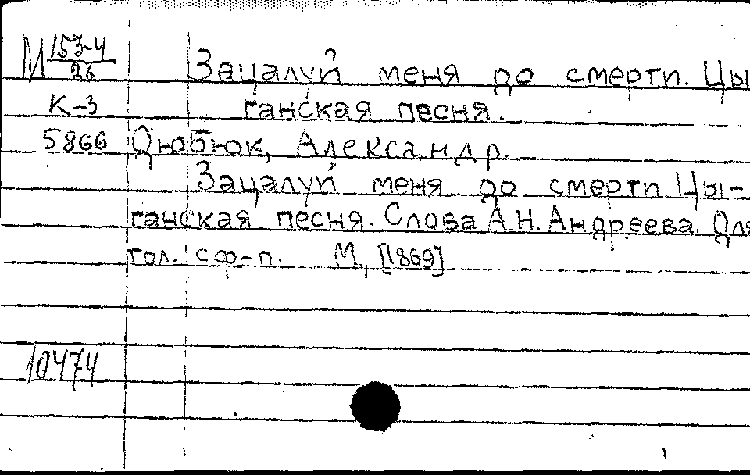 М 153-4/26 Зацалуй меня до смерти. Цы
К-3 ганская песня.
5866 Дюбюк, Александр.
Зацалуй меня до смерти Цы-
ганская песня. Слова А.Н. Андреева Для
гол. с ф-п. М, [1869]
10474